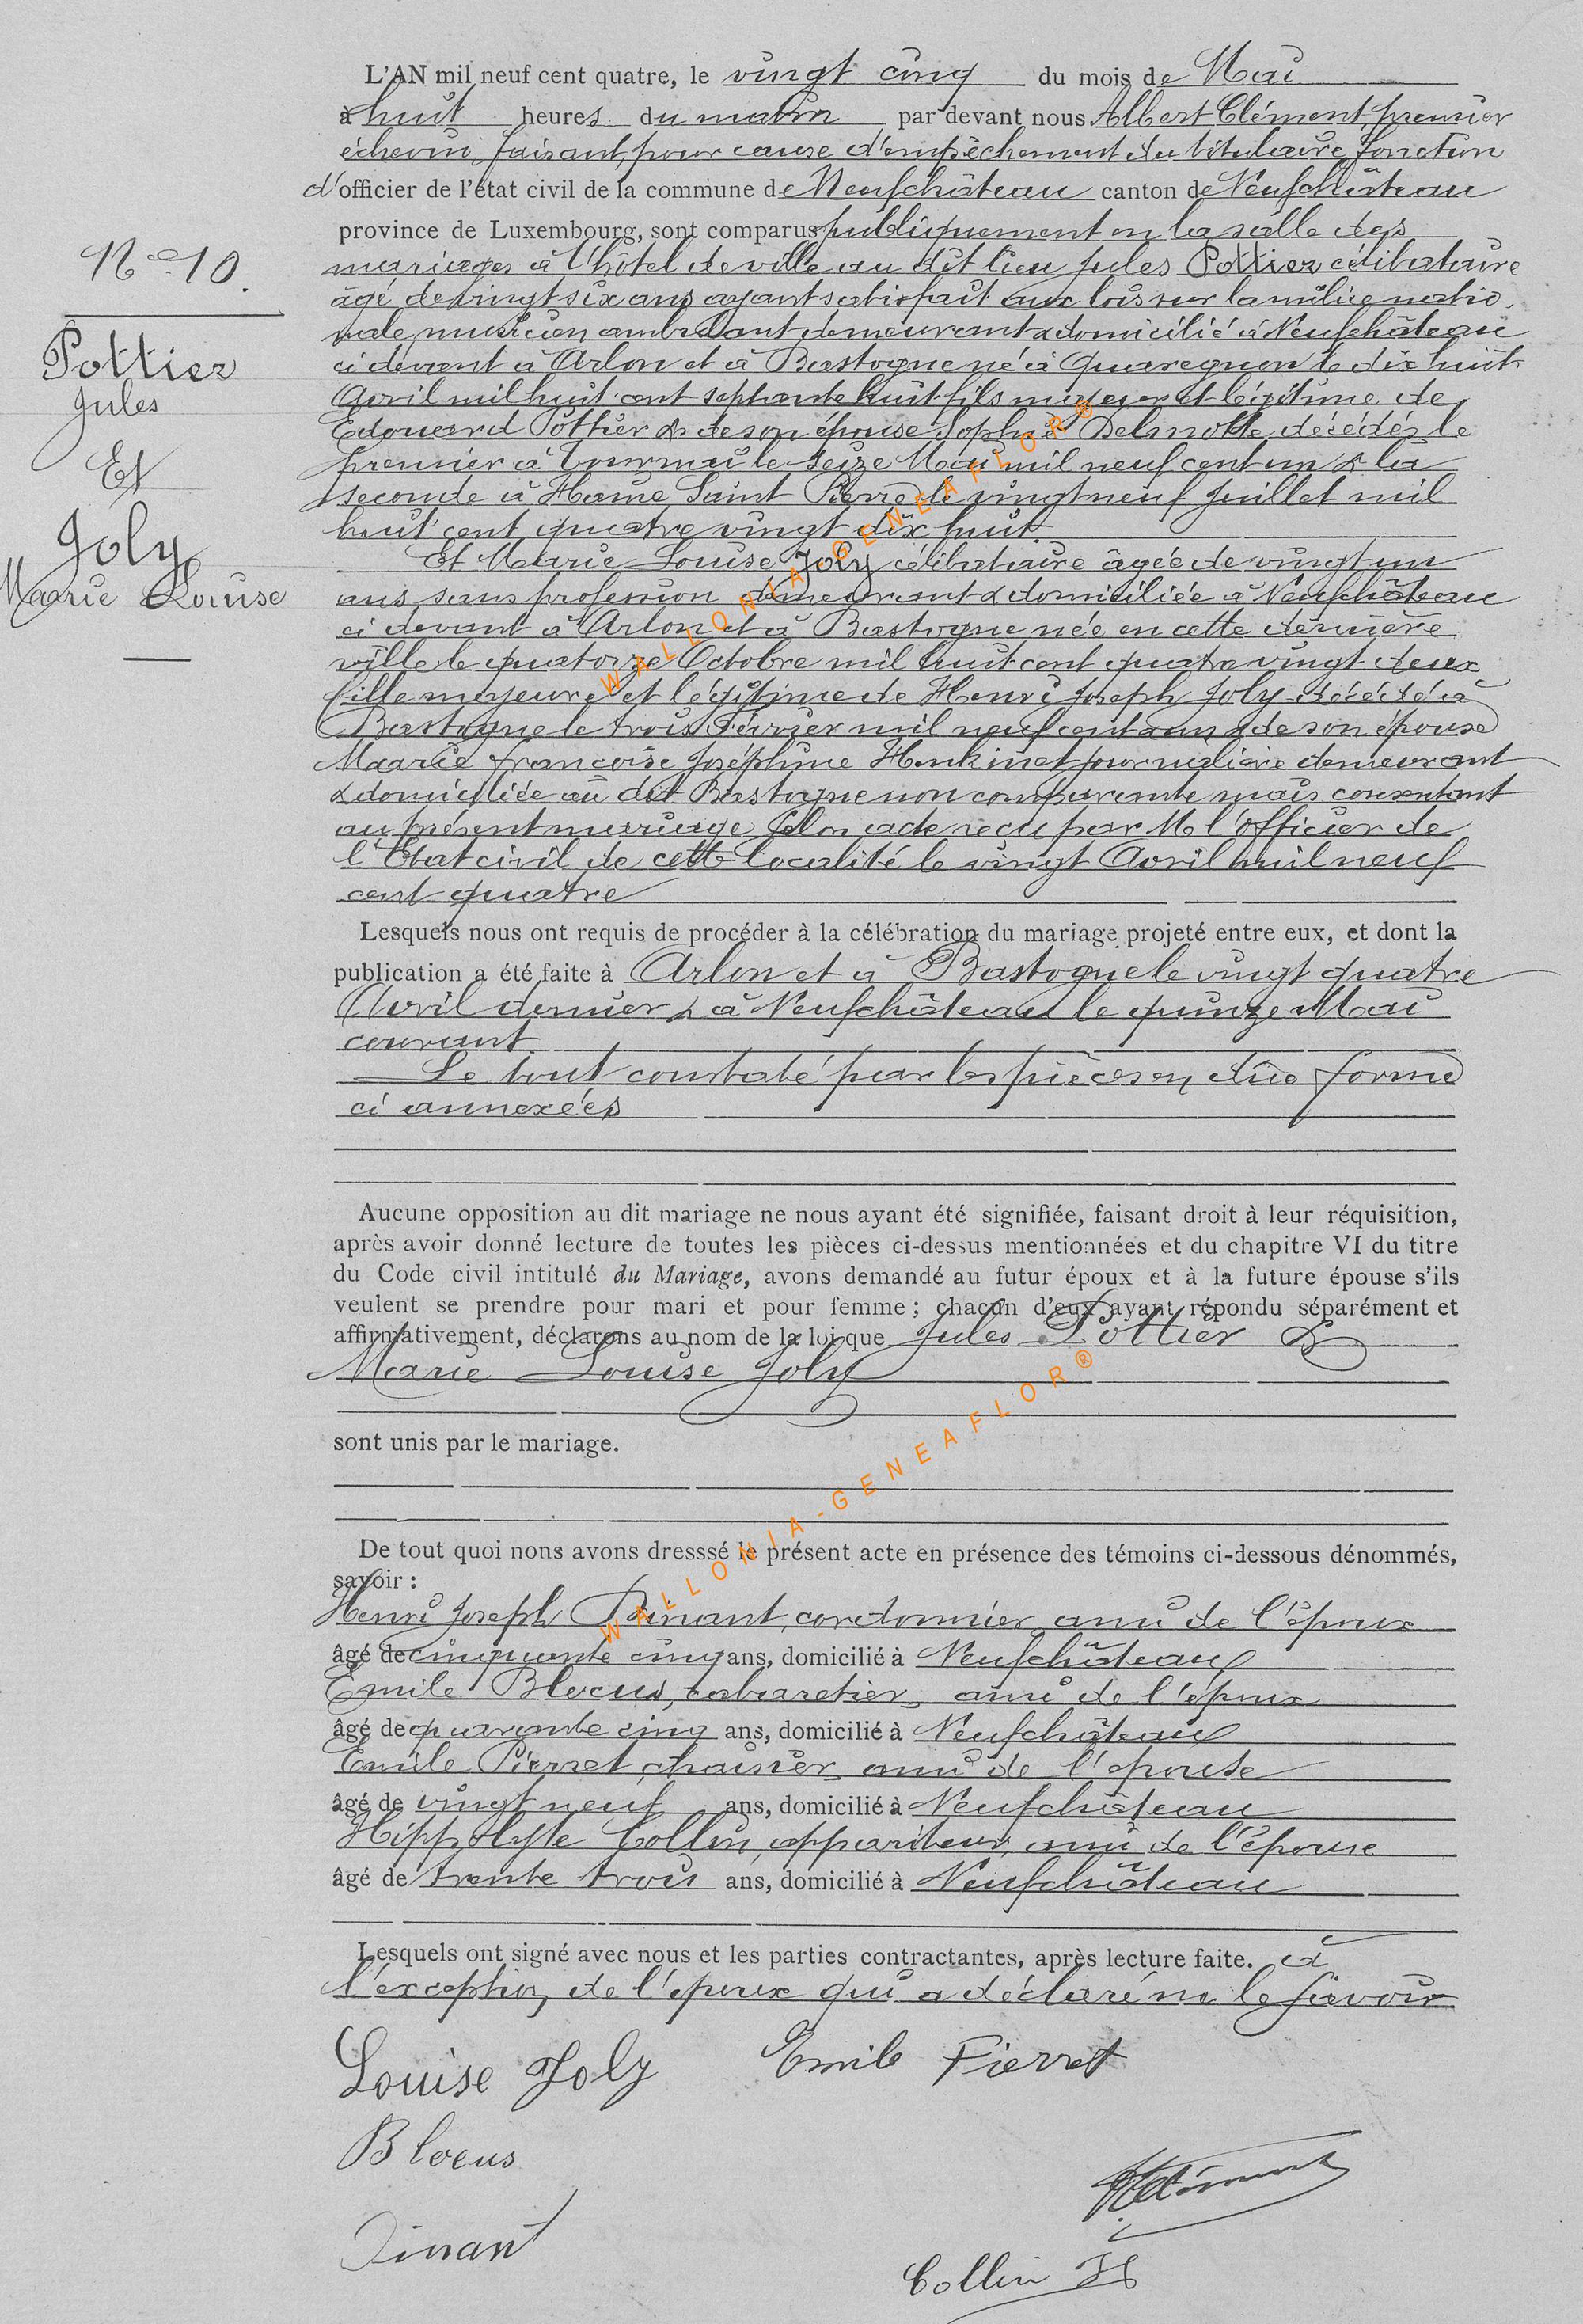 L'AN mil neuf cent quatre, le vingt cinq du mois de Mai
à huit heures du matin par devant nous Albert Clément premier
échevin faisant pour cause d'empêchement du titulaire fonction
d'officier de l'état civil de la commune de Neufchâteau canton de Neufchâteau
province de Luxembourg, sont comparus publiquement en la salle des
mariages à l'hôtel de ville au dit lieu Jules Pottier célibataire
âgé de vingt six ans ayant satisfait aux lois sur la milice natio
nale musicien ambulant demeurant & domicilié à Neufchâteau
ci devant à Arlon et à Bastogne né à Quaregnon le dix huit
Avril mil huit cent septante huit fils majeur et légitime de
Edouard Pottier & de son épouse Sophie Delanotte décédés le
premier à Tournai le seize Mai mil neuf cent un & la
seconde à Haine Saint Pierre le vingt neuf juillet mil
huit cent quatre vingt dix huit.
Et Marie Louise Joly célibataire âgée de vingt un
ans sans profession demeurant & domiciliée à Neufchâteau
ci devant à Arlon et à Bastogne née en cette dernière
ville le quatorze Octobre mil huit cent quatre vingt deux
fille majeure et légitime de Henri Joseph Joly décédé à
Bastogne le trois Février mil neuf cent un & de son épouse
Marie Françoise Joséphine Henkinet journalière demeurant
& domiciliée au dit Bastogne non comparante mais consentant
au présent mariage selon acte reçu par M l'officier de
l'Etat civil de cette localité le vingt Avril mil neuf
cent quatre
Lesquels nous ont requis de procéder à la célébration du mariage projeté entre eux, et dont la
publication a été faite à Arlon et à Bastogne le vingt quatre
Avril dernier & à Neufchâteau le quinze Mai
courant
Le tout constaté par les pièces en due forme
ci annexées
Aucune opposition au dit mariage ne nous ayant été signifiée, faisant droit à leur réquisition,
après avoir donné lecture de toutes les pièces ci-dessus mentionnées et du chapitre VI du titre
du Code civil intitulé du Mariage, avons demandé au futur époux et à la future épouse s'ils
veulent se prendre pour mari et pour femme ; chacun d'eux ayant répondu séparément et
affirmativement, déclarons au nom de la loi que Jules Pottier &
Marie Louise Joly
sont unis par le mariage.
De tout quoi nons avons dresssé le présent acte en présence des témoins ci-dessous dénommés,
savoir :
Henri Joseph Dinant, cordonnier, ami de l'époux
âgé de cinquante cinq ans, domicilié à Neufchâteau
Emile Blocus, cabaretier, ami de l'époux
âgé de quarante cinq ans, domicilié à Neufchâteau
Emile Pierret chaisier, ami de l'épouse
âgé de vingt neuf ans, domicilié à Neufchâteau
Hippolyte Collin, appariteur, ami de l'épouse
âgé de trente trois ans, domicilié à Neufchâteau
Lesquels ont signé avec nous et les parties contractantes, après lecture faite. à
l'exception de l'époux qui a déclaré ne le savoir
Louise Joly Emile Pierret
Blocus
AClément
Dinant
Collin H
N° 10.
Pottier
Jules
Et
Joly
Marie Louise
WALLONIA-GENEAFLOR®
WALLONIA-GENEAFLOR®